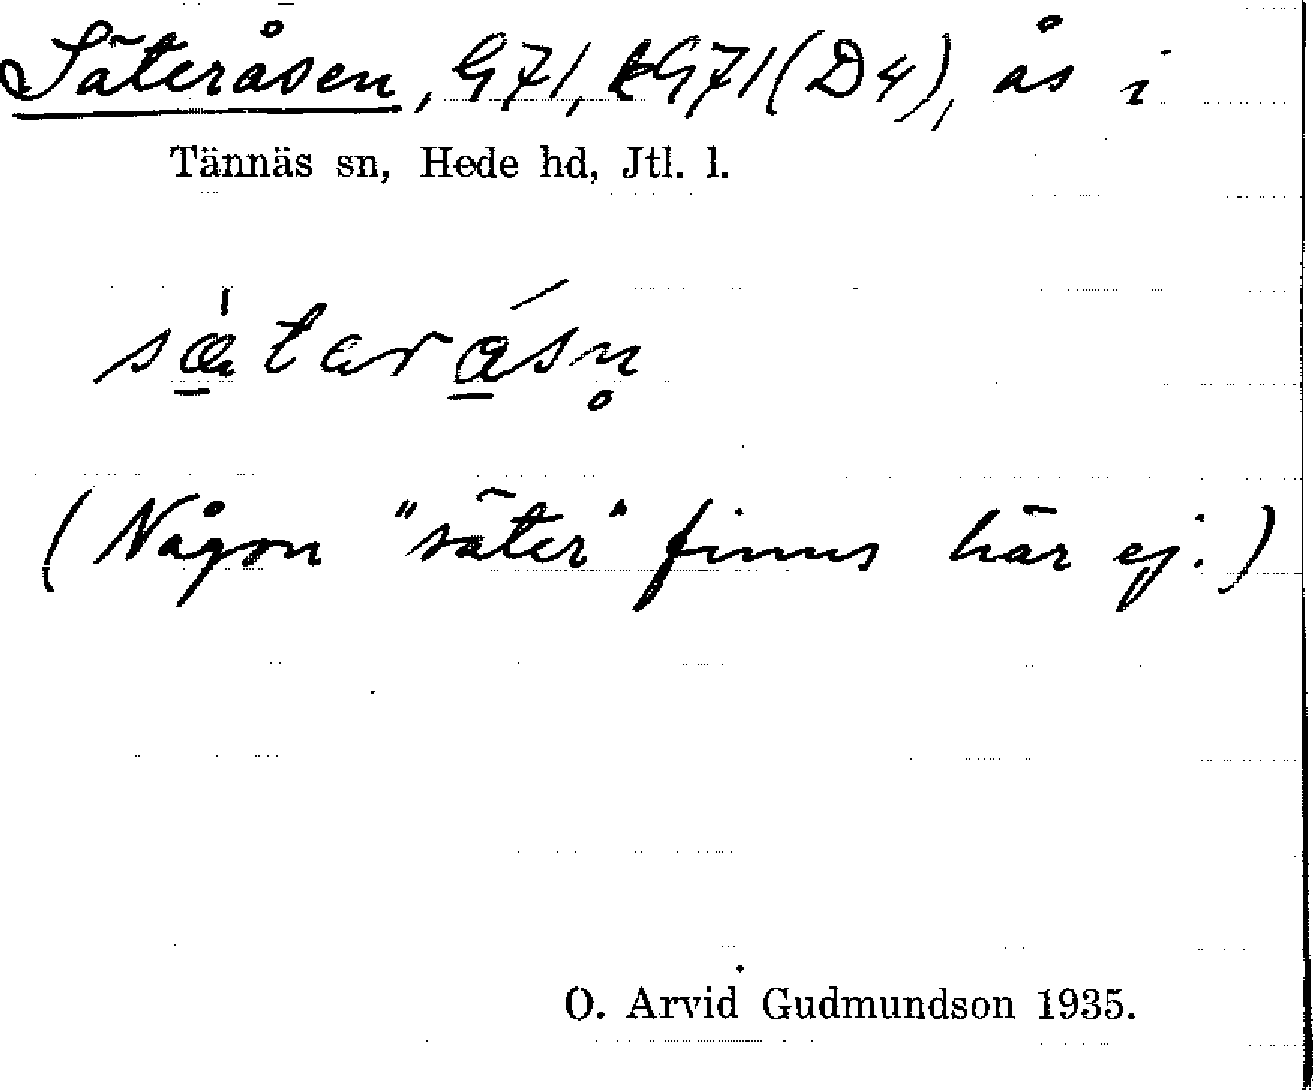 Säteråsen, G71, kG71(D4), ås i
Tännäs sn, Hede hd, Jtl. l.
(Någon "säter" finns här ej.)
O. Arvid Gudmundson 1935.